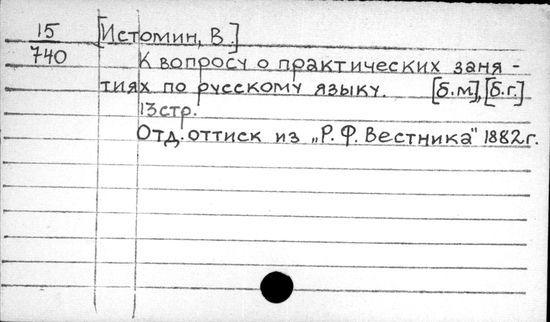 15 [Истомин, В.]
740 К вопросу о практических заня-
тиях по русскому языку. [б.м], [б.г.]
13 стр.
Отд. оттиск из „Р. Ф. Вестника" 1882 г.